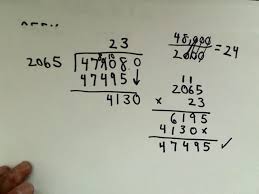 23
8 10
2065 479080
47495
4130
48,000
2000
= 24
11
2065
× 23
6195
4130×
47495 ✓